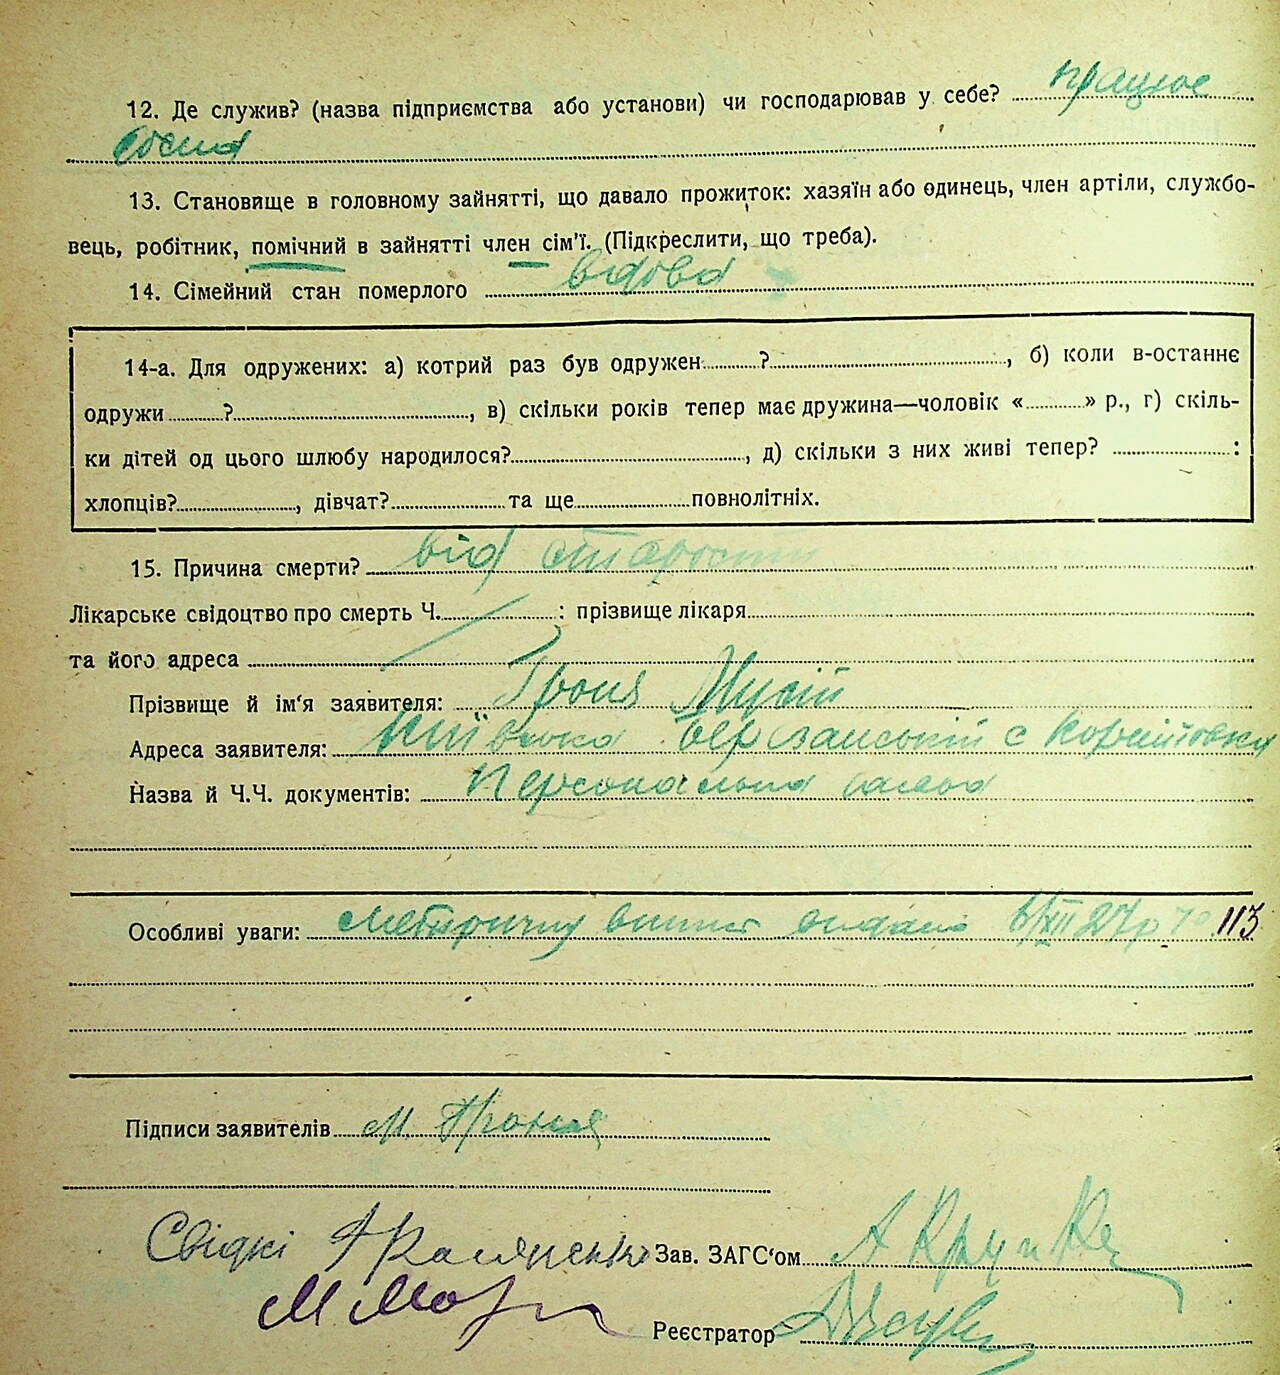 12. Де служив? (назва підприємства або установи) чи господарював у себе? працює
13. Становище в головному зайнятті, що давало прожиток: хазяїн або одинець, член артіли, службо-
вець, робітник, помічний в зайнятті член сім'ї. (Підкреслити, що треба).
14. Сімейний стан померлого вдова
14-а. Для одружених: а) котрий раз був одружен ? , б) коли в-останнє
одружи ? , в) скільки років тепер має дружина—чоловік « » р., г) скіль-
ки дітей од цього шлюбу народилося? , д) скільки з них живі тепер? :
хлопців? , дівчат? та ще повнолітніх.
15. Причина смерти? від старости
Лікарське свідоцтво про смерть Ч. : прізвище лікаря
та його адреса
Прізвище й ім'я заявителя: Гроня Мусій
Адреса заявителя: Київська Березанський с
Назва й Ч.Ч. документів: Персональна
Особливі уваги: метричну видано 6/XII 27р 113
Підписи заявителів М. Гроня
Свідкі Зав. ЗАГС'ом
Реєстратор